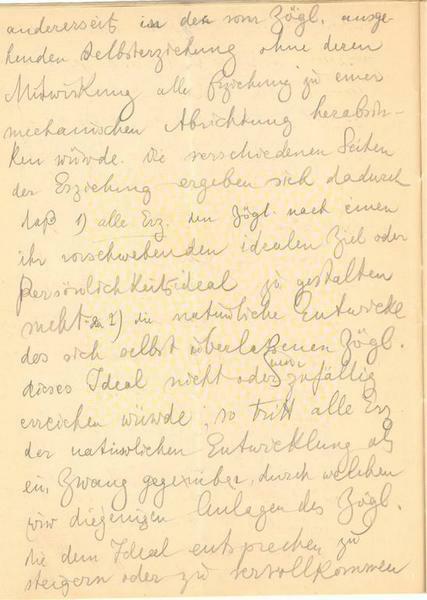 andererseits in der vom Zögl. ausge-
henden Selbsterziehung ohne deren
Mitwirkung alle Erziehung zu einer
mechanischen Abrichtung herabsin-
ken würde. Die verschiedenen Seiten
der Erziehung ergeben sich dadurch
daß 1) alle Erz. den Zögl. nach einen
ihr vorschwebenden idealen Ziel oder
Persönlichkeitsideal zu gestalten
sucht 2) die natürliche Entwickl
des sich selbst überlassenen Zögl.
dieses Ideal nicht oder nur zufällig
erreichen würde, so tritt alle Erz
der natürlichen Entwicklung als
ein Zwang gegenüber, durch welchen
wir diejenigen Anlagen des Zögl.
die dem Ideal entsprechen zu
steigern oder zu vervollkommen